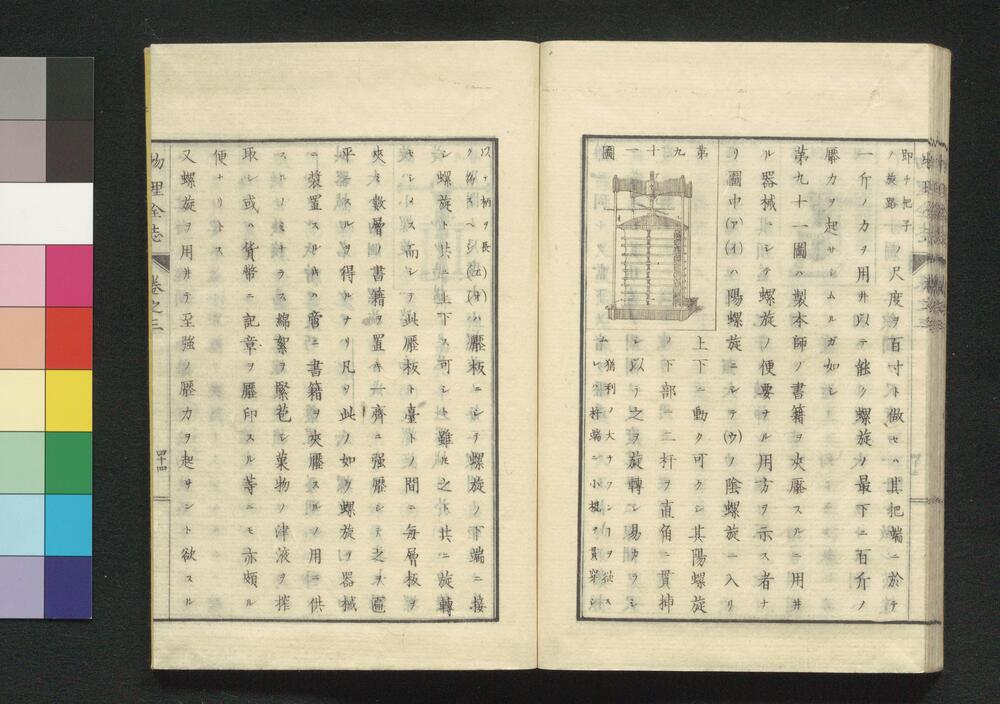 即チ把子ノ尺度ヲ百寸ト做セハ其把端ニ於テ
ノ旋路
一斤ノ力ヲ用井以テ能ク螺旋ノ最下ニ百斤ノ
壓力ヲ起サシムルガ如シ
第九十一圖ハ製本師ノ書籍ヲ夾壓スルニ用井
ル器械ニシテ螺旋ノ便要ナル用方ヲ示ス者ナ
リ圖中(ア)(イ)ハ陽螺旋ニシテ(ウ)ノ陰螺旋ニ入リ
第九十一圖
上下ニ動ク可クシ其陽螺旋
ノ下部ニ二杆ヲ直角ニ貫挿
シ以テ之ヲ旋轉シ易カラシ
ム
猶利ノ大ナランヿヲ欲ス
レハ杆端ニ小棍ヲ貫穿シ
以テ柄ヲ長
クス
(エ)(オ)ハ壓板ニシテ螺旋ノ下端ニ接
シ螺旋ト共ニ上下ス可シト雖𪜈之ト共ニ旋轉
セシメス而シテ此壓板ト臺トノ間ニ毎層板ヲ
夾ミ數層ノ書籍ヲ置キ一齊ニ强壓シテ之ヲ匾
平ニスルヲ得ルナリ凡ソ此ノ如ク螺旋ヲ器械
ニ裝置スルキハ啻ニ書籍ヲ夾壓スルノ用ニ供
スルノミナラス綿絮ヲ緊苞シ菓物ノ津液ヲ搾
取シ或ハ貨幣ニ記章ヲ壓印スル等ニモ亦頗ル
便ナリトス
又螺旋ヲ用井テ至強ノ壓力ヲ起サント欲スル
物理全志
卷之三
四十四